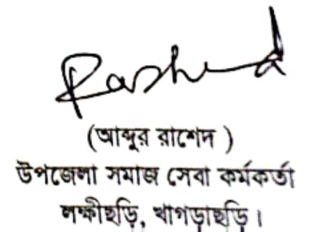 Rashed
(আব্দুর রাশেদ )
উপজেলা সমাজ সেবা কর্মকর্তা
লক্ষীছড়ি, খাগড়াছড়ি।